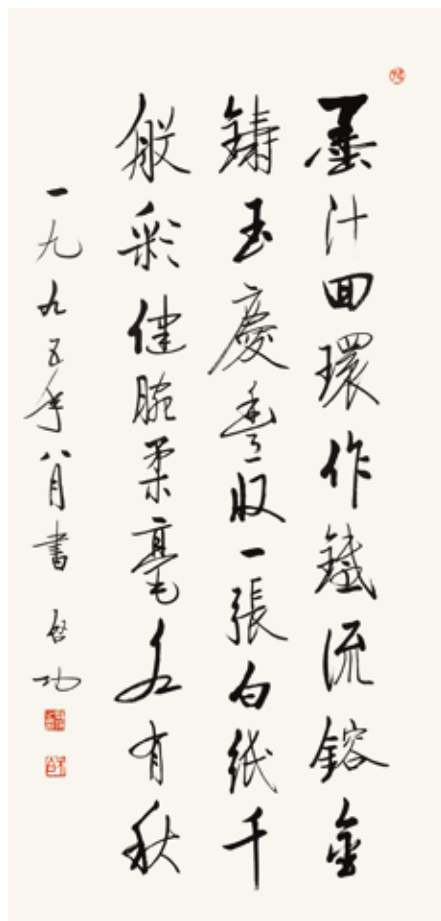 墨汁回環作鐵流鎔金
鑄玉慶豐收一張白紙千
般彩健腕柔毫各有秋
一九九五年八月書 啓功